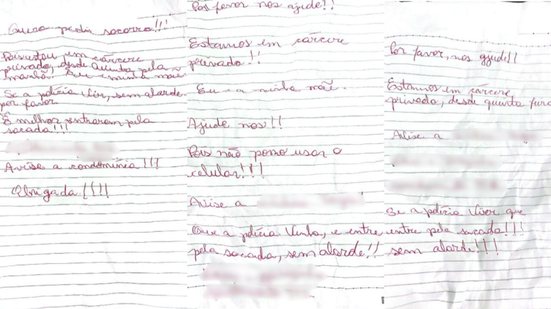 Quero pedir socorro!!!
Pois estou em cárcere
privado, desde quinta pela
manhã. Eu e minha mãe
Se a polícia vir, sem alarde
por favor
É melhor entrarem pela
sacada!!!
Avise a condomínia!!!
Obrigada!!!!
Por favor nos ajude!!
Estamos em cárcere
privado!!
Eu e a minha mãe.
Ajude nos!!
Pois não posso usar o
celular!!!
Avise a
Que a polícia venha, e entre
pela sacada, sem alarde!!
Por favor, nos ajude!!
Estamos em cárcere
privado, desde quinta feira
Avise a
Se a polícia vier que
entre pela sacada!!!
sem alarde!!!